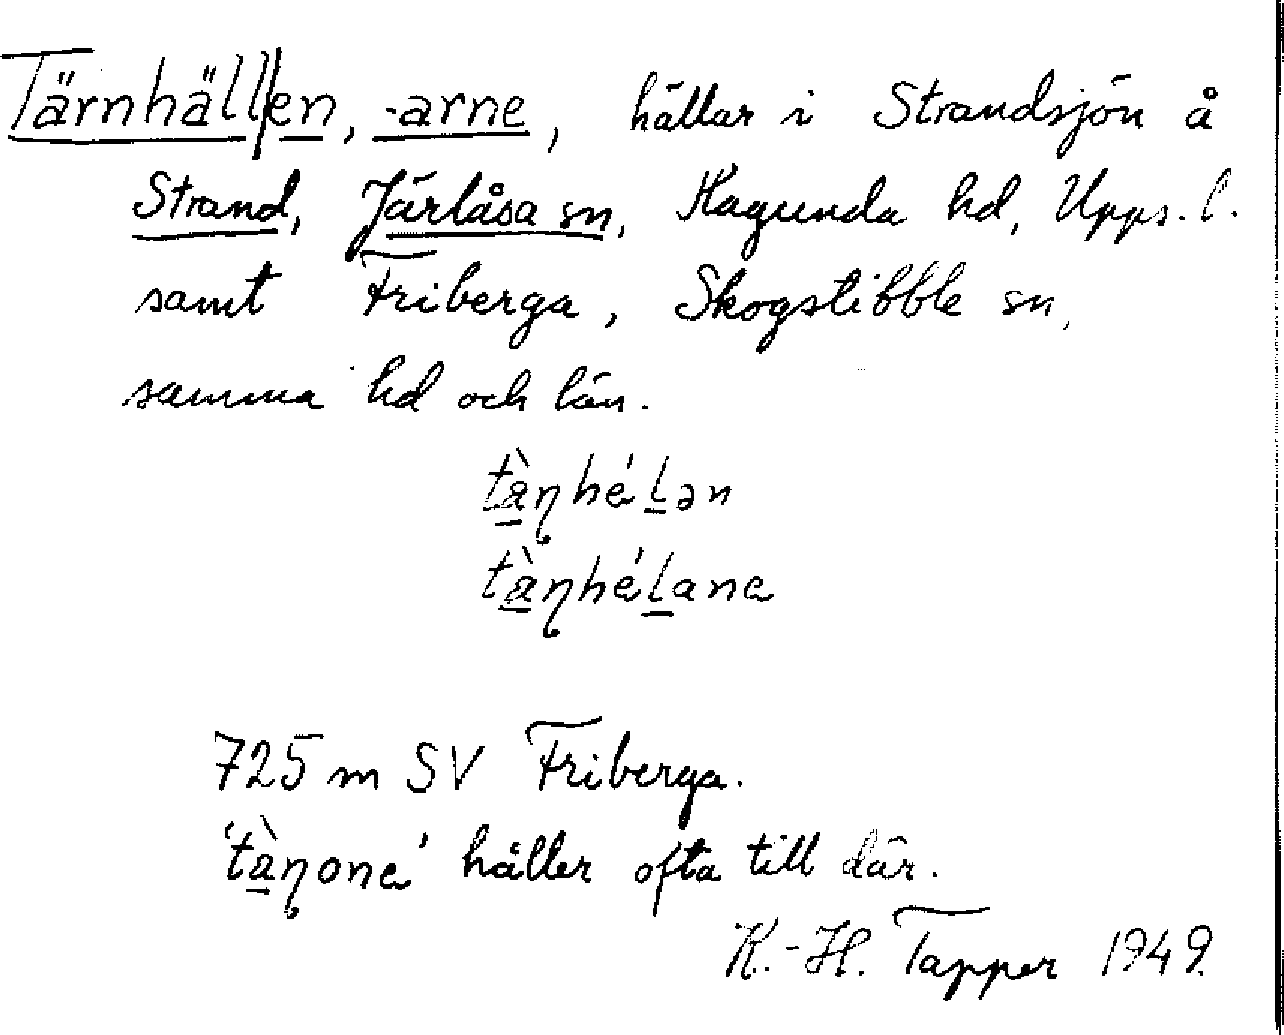 Tärnhäll|en, -arne, hällar i Strandsjön å
Strand, Järlåsa sn, Hagunda hd, Upps. l.
samt Friberga, Skogstibble sn,
samma hd och län.
tàṇhéḻən
tàṇhéḻane
725 m SV Friberga.
'tàṇone' håller ofta till där.
K.-H. Tapper 1949.